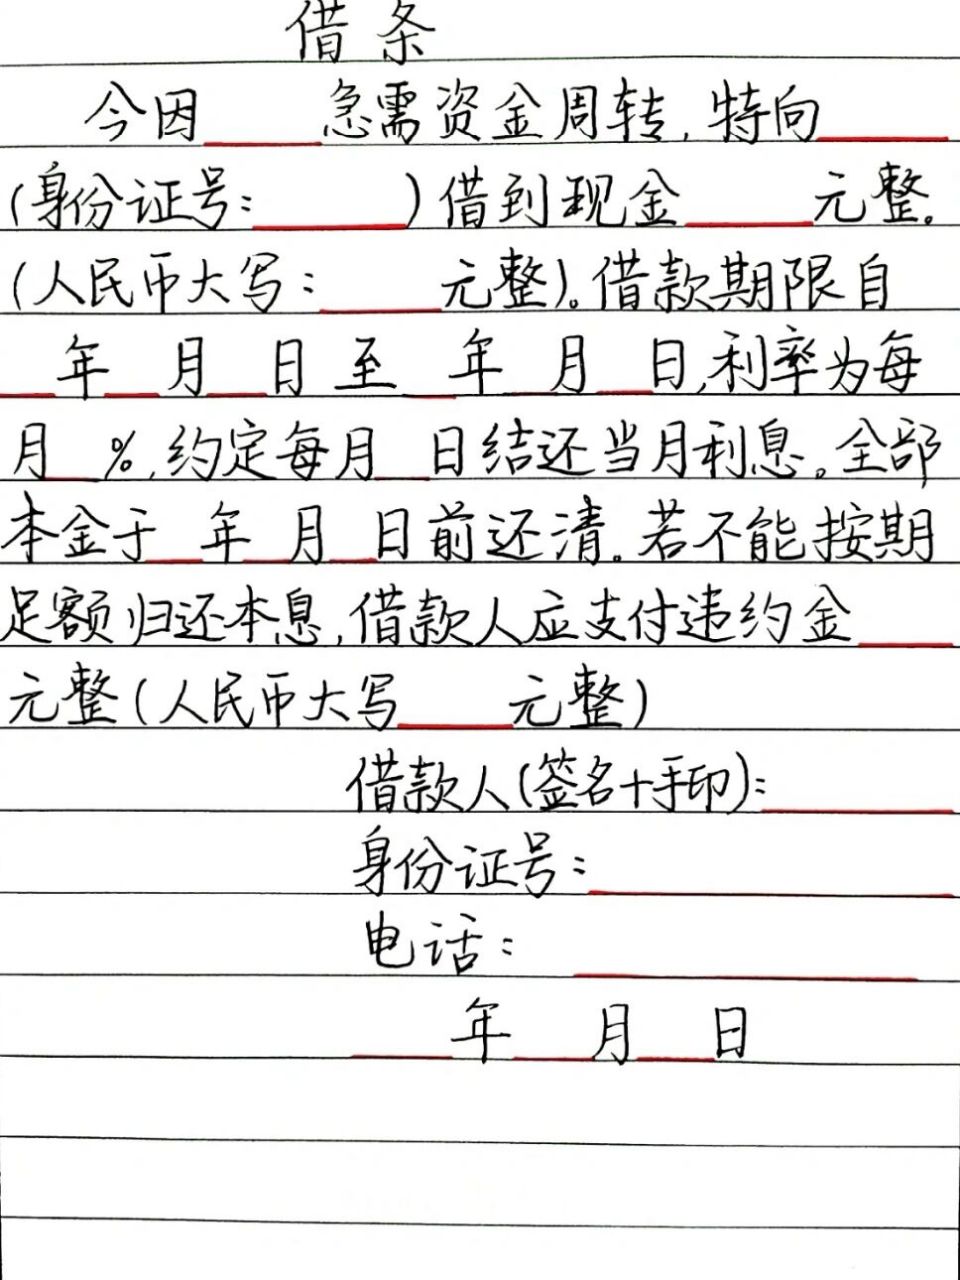 借条
今因____急需资金周转,特向____
(身份证号:____)借到现金____元整。
(人民币大写:____元整)。借款期限自
__年__月__日至__年__月__日,利率为每
月__%,约定每月__日结还当月利息。全部
本金于__年__月__日前还清。若不能按期
足额归还本息,借款人应支付违约金____
元整(人民币大写____元整)
借款人(签名+手印):____
身份证号:____
电话:____
____年____月____日